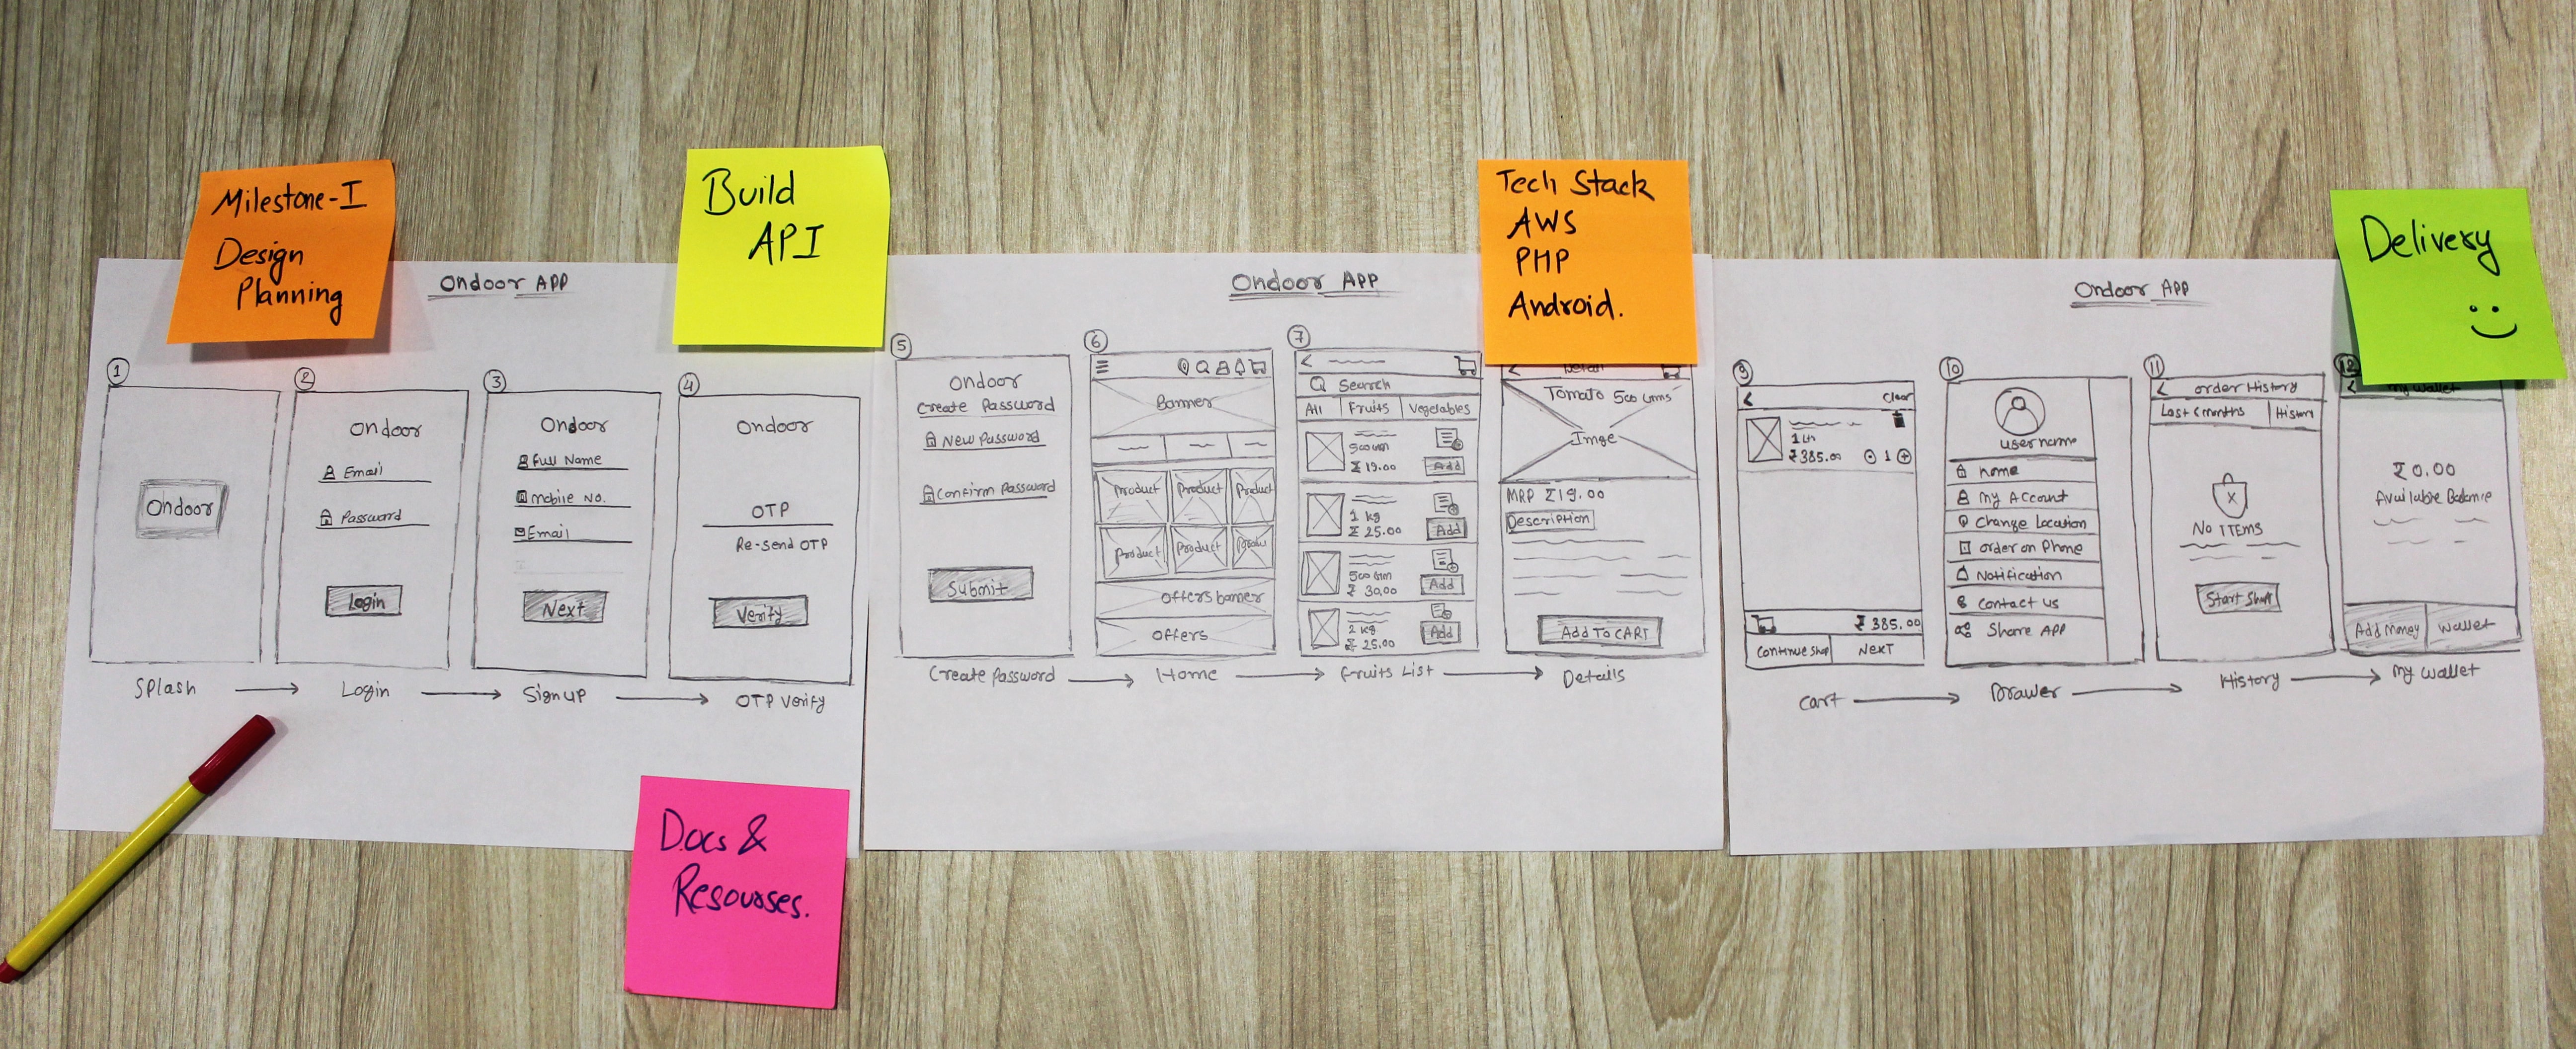 Milestone-I
Design
Planning
Build
API
Tech Stack
AWS
PHP
Android.
Delivery
Docs &
Resourses.
Ondoor APP
1
Ondoor
Splash
2
Ondoor
Email
Password
Login
Login
3
Ondoor
Full Name
mobile No.
Email
Next
Signup
4
Ondoor
OTP
Re-send OTP
Verify
OTP Verify
Ondoor APP
5
Ondoor
Create Password
New Password
Confirm Password
Submit
Create Password
6
Banner
Product Product Product
Product Product
Offers banner
Offers
Home
7
Search
All Fruits Vegetables
500 Gm
₹ 19.00
Add
1 kg
₹ 25.00
Add
500 Gm
₹ 30.00
Add
2 kg
₹ 25.00
Add
Fruits List
Detail
Tomato 500 Gms
Imge
MRP ₹19.00
Description
Add To CART
Details
Ondoor APP
9
Clear
₹385.00
1
₹ 385.00
Continue Shop
Next
Cart
10
username
home
My Account
Change Location
order on Phone
Notification
Contact us
Share APP
Drawer
11
order History
Last 6 months
History
No ITEMS
Start Shop
History
12
My Wallet
₹0.00
Available Balance
Add Money
Wallet
My Wallet